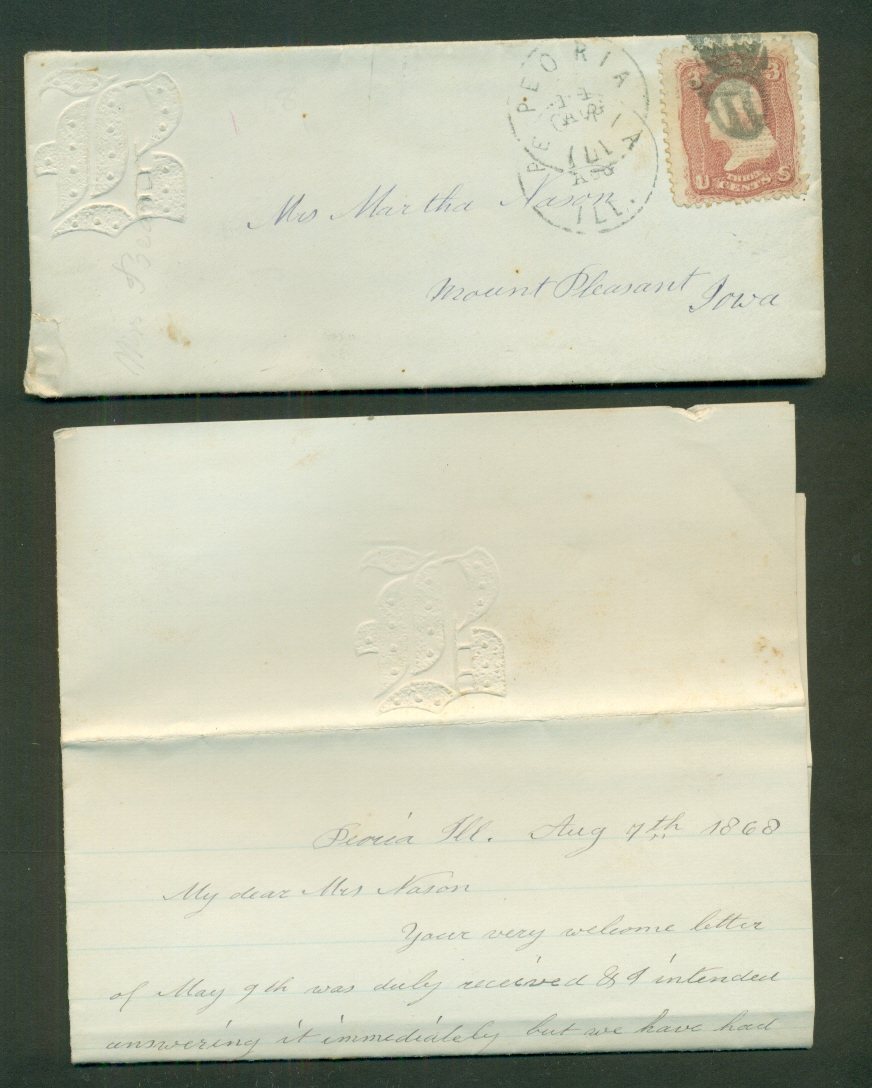 PEORIA
ILL.
3 3
U THREE CENTS S
Mrs Martha Nason
Mount Pleasant Iowa
Mrs
Peoria Ill. Aug 7th 1868
My dear Mrs Nason
Your very welcome letter
of May 9th was duly received & I intended
answering it immediately but we have had